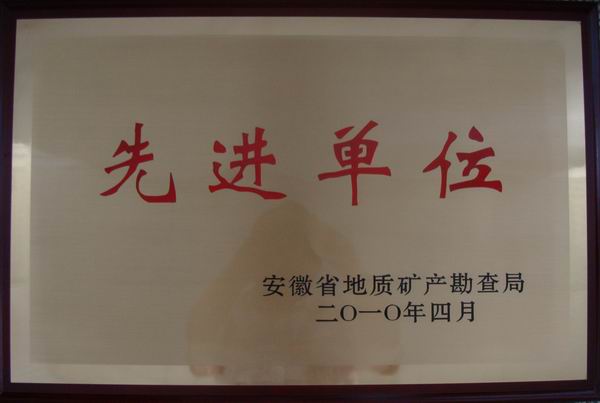 先进单位
安徽省地质矿产勘查局
二〇一〇年四月